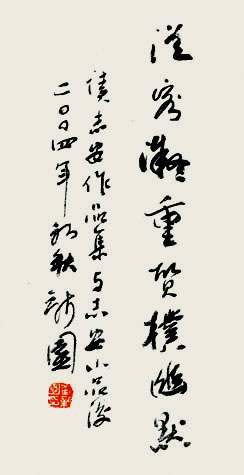 從容凝重質樸幽默
讀志安作品集与志安小品後
二〇〇四年初秋